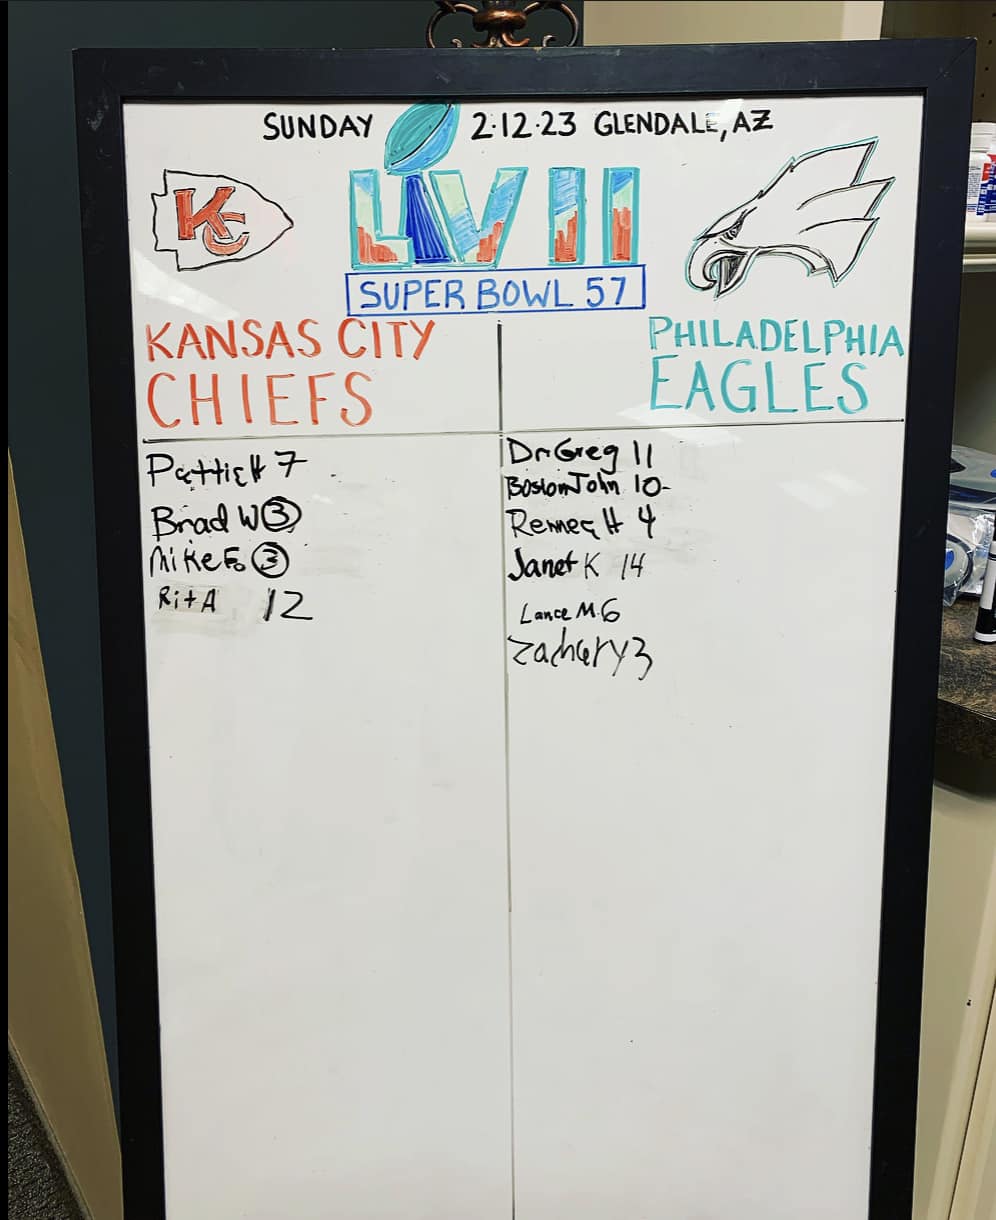 SUNDAY 2·12·23 GLENDALE, AZ
KC
LVII
SUPER BOWL 57
KANSAS CITY
CHIEFS
PHILADELPHIA
EAGLES
Pattie H 7
Brad W 3
Mike F. 3
RitA 12
Dr Greg 11
Boston John 10-
Renner H 4
Janet K 14
Lance M. 6
Zachery 3